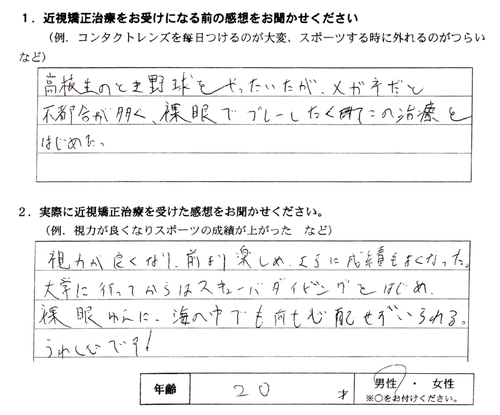 １．近視矯正治療をお受けになる前の感想をお聞かせください
（例．コンタクトレンズを毎日つけるのが大変、スポーツする時に外れるのがつらい
など）
高校生のとき野球をやったいたが、メガネだと
不都合が多く、裸眼でプレーしたく この治療を
はじめた。
２．実際に近視矯正治療を受けた感想をお聞かせください。
（例．視力が良くなりスポーツの成績が上がった　など）
視力が良くなり、前より楽しめ、さらに成績もよくなった。
大学に行ってからはスキューバダイビングをはじめ、
裸眼 に、海の中でも何も心配せずいられる。
うれしいです！
年齢　２０　才　男性 ・ 女性
※○をお付けください。